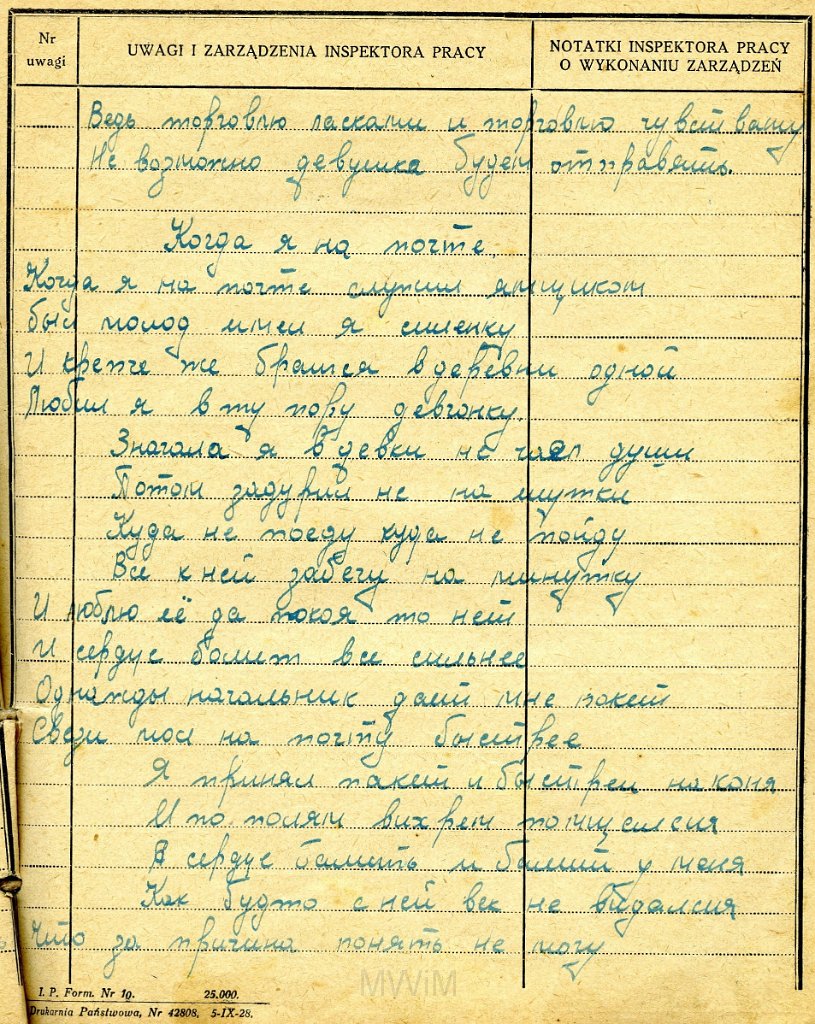 Nr uwagi
UWAGI I ZARZĄDZENIA INSPEKTORA PRACY
NOTATKI INSPEKTORA PRACY
O WYKONANIU ZARZĄDZEŃ
Ведь торговлю ласками и торговлю
Не возможно девушка будем отправять.
Когда я на почте.
Когда я на почте служил ямщиком
был молод имел я силенку
И крепче же братся в деревни одной
Любил я в ту пору девчонку.
Значала я в девки не чаял души
Потом задурил не на шутки
Куда не поеду куда не пойду
Все к ней забегу на минутку
И люблю её да покоя то нет
И сердце болит все сильнее
Однажды начальник дает мне покет
Свези мол на почту быстрее
Я принял пакет и быстрей на коня
И по полям вихрем помщелсия
А сердце балить и балит у меня
Как будто с ней век не видалсия
Что за причина понять не могу
MWiM
I. P. Form. Nr 19. 25.000.
Drukarnia Państwowa, Nr 42808. 5-IX-28.